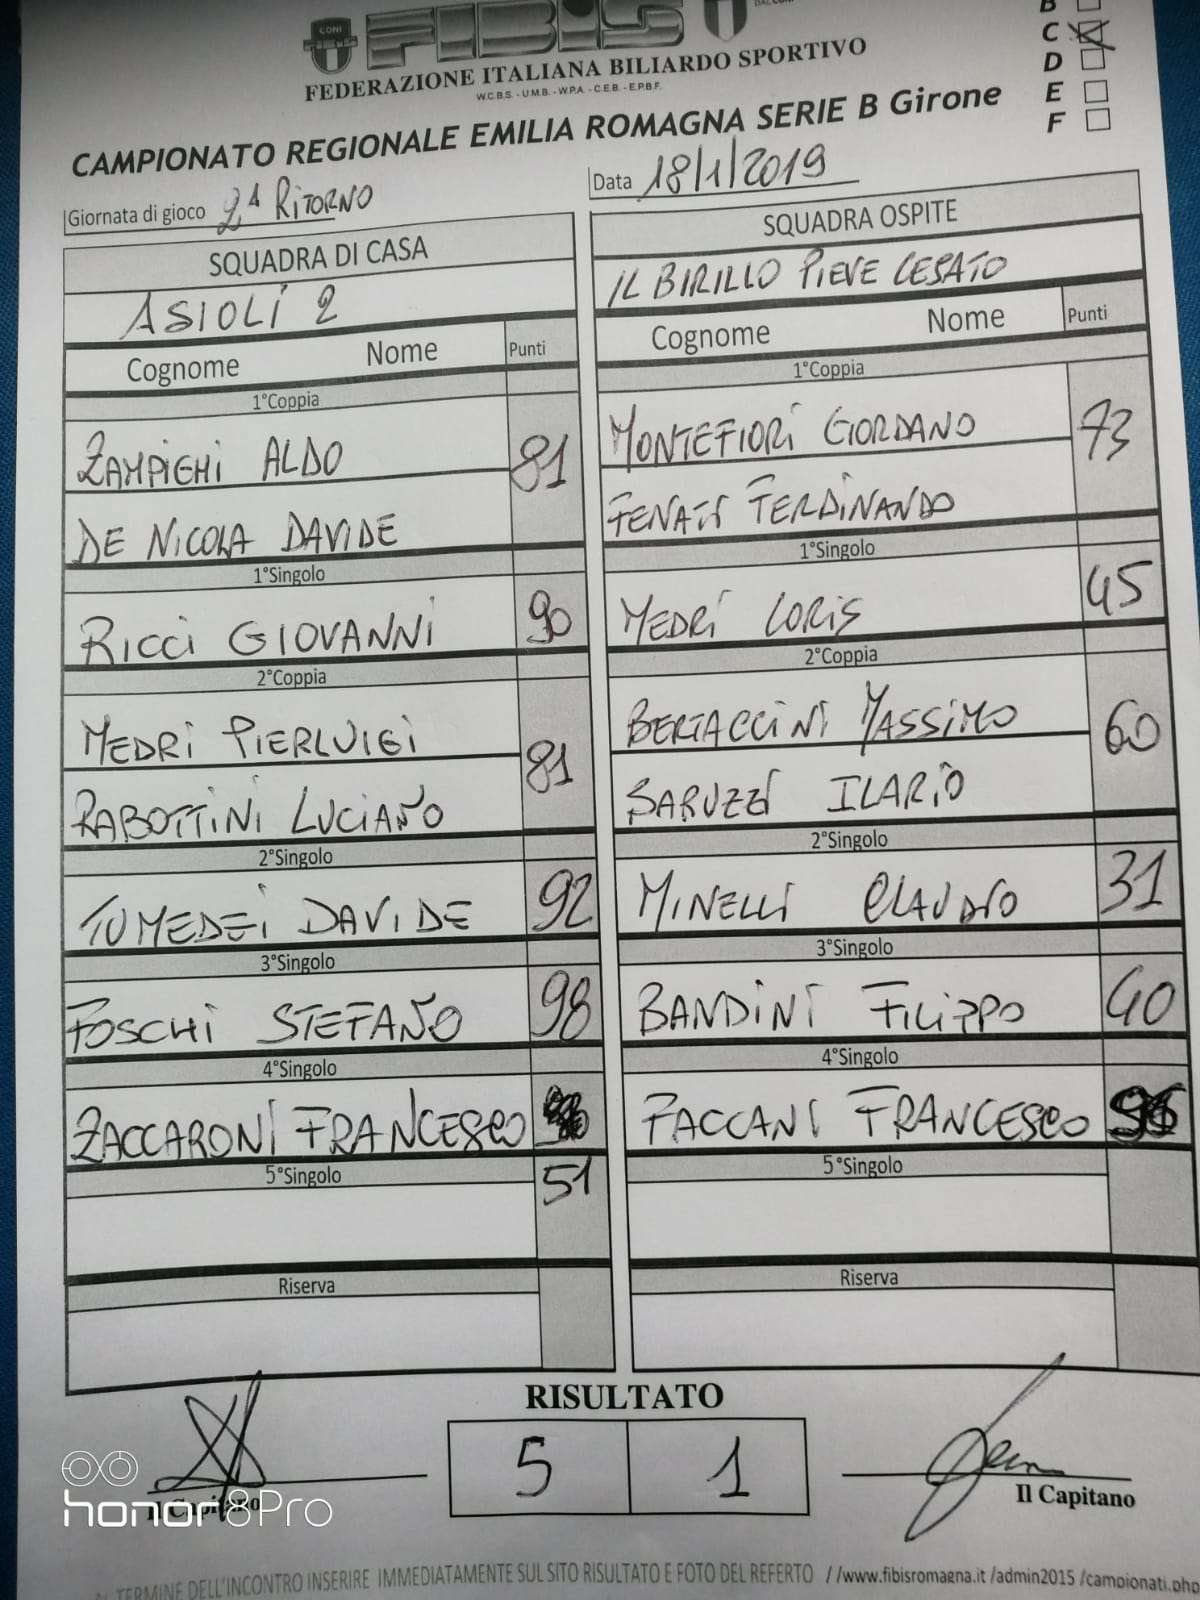 CONI FIBIS
FEDERAZIONE ITALIANA BILIARDO SPORTIVO
W.C.B.S. - U.M.B. - W.P.A. - C.E.B. - E.P.B.F.
B
C
D
E
F
CAMPIONATO REGIONALE EMILIA ROMAGNA SERIE B Girone
Giornata di gioco 2ª RITORNO
Data 18/1/2019
SQUADRA DI CASA
ASIOLI 2
Cognome Nome Punti
1°Coppia
ZAMPIGHI ALDO
81
DE NICOLA DAVIDE
1°Singolo
RICCI GIOVANNI 90
2°Coppia
MEDRI PIERLUIGI
81
RABOTTINI LUCIANO
2°Singolo
TUMEDEI DAVIDE 92
3°Singolo
FOSCHI STEFANO 98
4°Singolo
ZACCARONI FRANCESCO
5°Singolo
51
Riserva
SQUADRA OSPITE
IL BIRILLO PIEVE CESATO
Cognome Nome Punti
1°Coppia
MONTEFIORI GIORDANO
73
FENATI FERDINANDO
1°Singolo
MEDRI LORIS 45
2°Coppia
BERTACCINI MASSIMO
60
SARUZZI ILARIO
2°Singolo
MINELLI CLAUDIO 31
3°Singolo
BANDINI FILIPPO 40
4°Singolo
FACCANI FRANCESCO
5°Singolo
Riserva
RISULTATO
5 1
Il Capitano
Il Capitano
honor8Pro
AL TERMINE DELL'INCONTRO INSERIRE IMMEDIATAMENTE SUL SITO RISULTATO E FOTO DEL REFERTO //www.fibisromagna.it /admin2015 /campionati.php